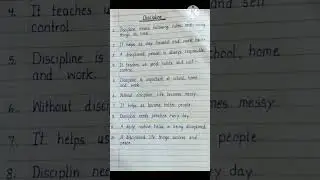 4. It teaches us
and self
control.
5. Discipline is
school, home
and work.
6. Without disci
messy.
7. It helps us
people.
8. Disciplin need
day.
Discipline
1. Discipline means following rules and doing
things on time.
2. It helps us stay focused and work hard.
3. A disciplined person is always responsible.
4. It teaches us good habits and self-
control.
5. Discipline is important at school, home
and work.
6. Without discipline, life becomes messy.
7. It helps us become better people.
8. Discipline needs practice every day.
9. A daily routine helps in being disciplined.
10. A disciplined life brings success and
peace.